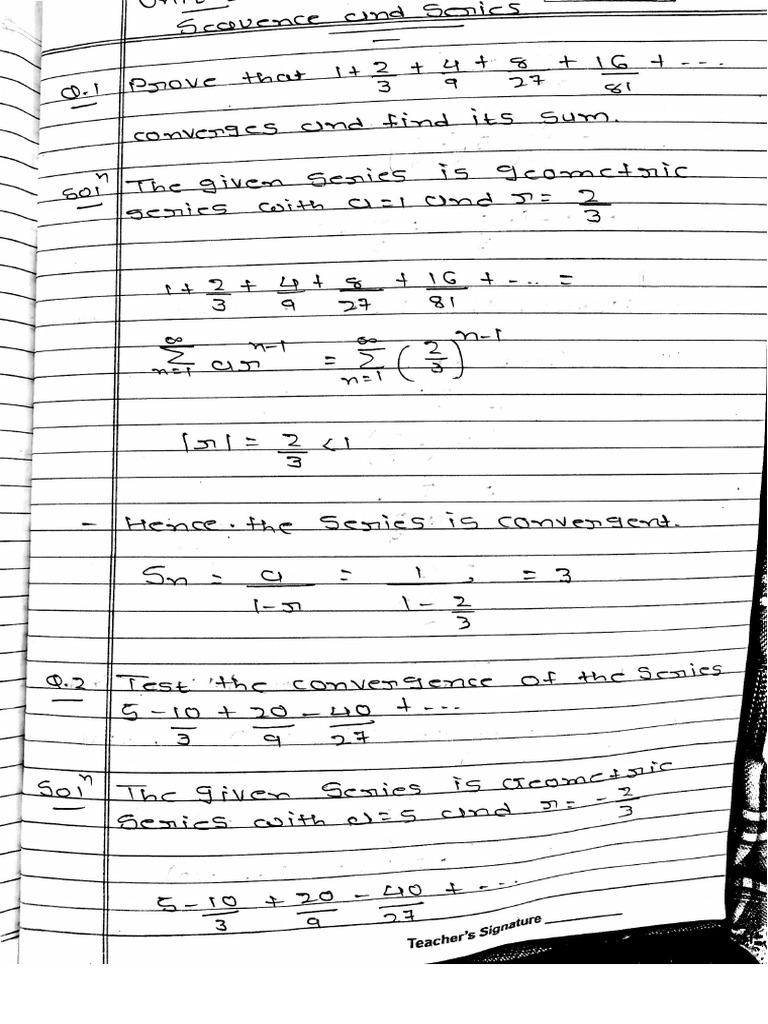 Sequence and Series
Q.1 Prove that 1 + 2/3 + 4/9 + 8/27 + 16/81 + ---
converges and find its sum.
Solⁿ The given series is geometric
series with a=1 and r= 2/3
1 + 2/3 + 4/9 + 8/27 + 16/81 + -.. =
∞Σn=1 ar^(n-1) = ∞Σn=1 (2/3)^(n-1)
|r| = 2/3 < 1
- Hence. the series is convergent.
Sn = a/(1-r) = 1/(1 - 2/3) = 3
Q.2 Test the convergence of the series
5 - 10/3 + 20/9 - 40/27 + -..
Solⁿ The given series is Geometric
series with a=5 and r= -2/3
5 - 10/3 + 20/9 - 40/27 + -..
Teacher's Signature